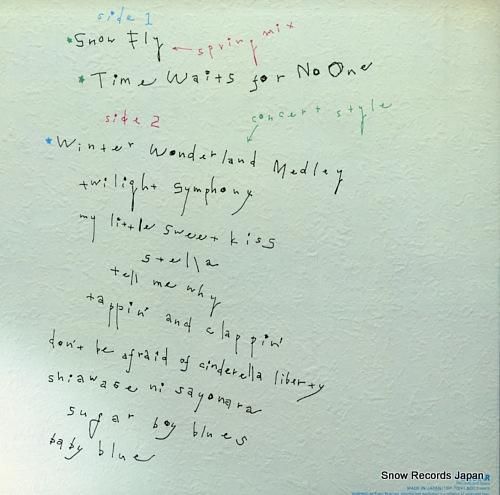 side 1
*Snow Fly ← spring mix
*Time Waits for No One
side 2
concert style
*Winter Wonderland Medley
twilight symphony
my little sweet kiss
stella
tell me why
tappin' and clappin'
don't be afraid of cinderella liberty
shiawase ni sayonara
sugar boy blues
baby blue
Snow Records Japan